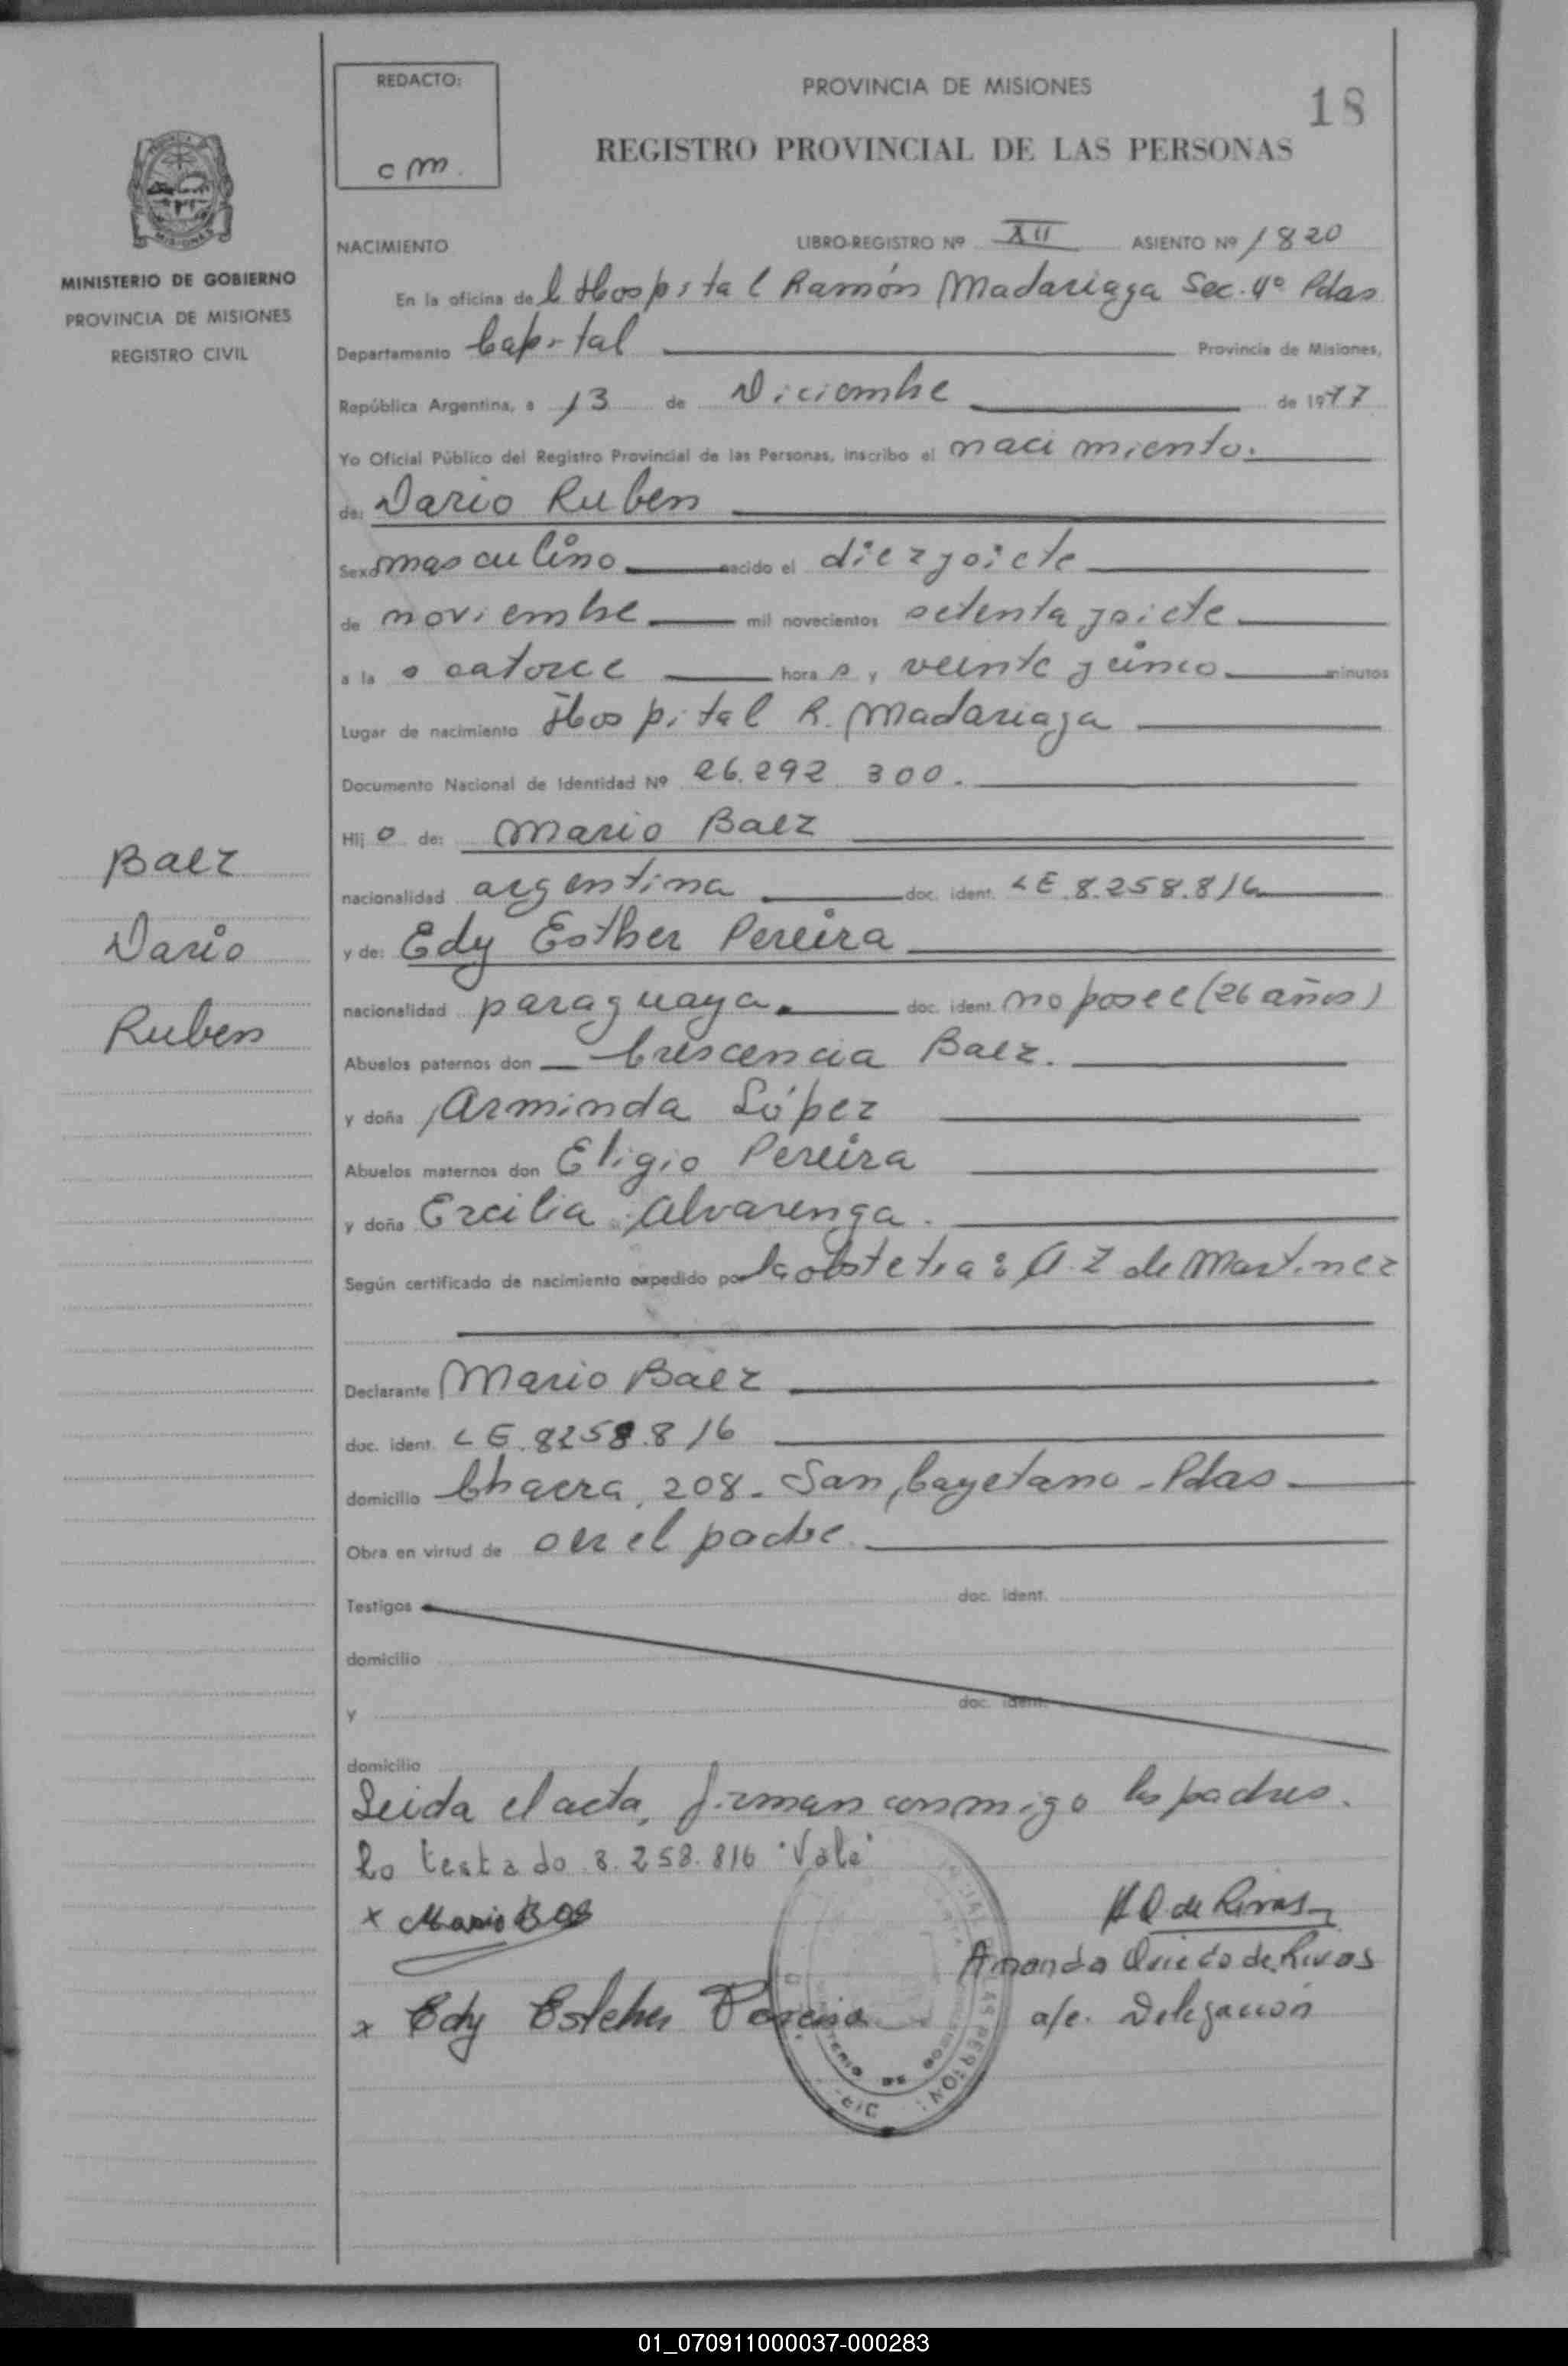 REDACTO:
cm.
PROVINCIA DE MISIONES
18
REGISTRO PROVINCIAL DE LAS PERSONAS
MISIONES
MINISTERIO DE GOBIERNO
PROVINCIA DE MISIONES
REGISTRO CIVIL
NACIMIENTO LIBRO-REGISTRO Nº XII ASIENTO Nº 1820
En la oficina del Hospital Ramón Madariaga Sec. 4º Pdas
Departamento Capital Provincia de Misiones,
República Argentina, a 13 de Diciembre de 1977
Yo Oficial Público del Registro Provincial de las Personas, inscribo el nacimiento.
de: Dario Ruben
Sexo masculino nacido el diezysiete
de noviembre mil novecientos setenta ysiete
a la s catorce hora s y veinte y cinco minutos
Lugar de nacimiento Hospital R. Madariaga
Documento Nacional de Identidad Nº 26.292.300.
Hij o de: Mario Baez
nacionalidad argentina doc. ident. LE 8.258.816
y de: Edy Esther Pereira
nacionalidad paraguaya. doc. ident. no posee (26 años)
Abuelos paternos don Crescencia Baez.
y doña Arminda López
Abuelos maternos don Eligio Pereira
y doña Ercilia Alvarenga.
Según certificado de nacimiento expedido por la obstetra: A. Z de Martinez
Declarante Mario Baez
doc. ident. LE. 8258.816
domicilio Chacra, 208 - San Cayetano - Pdas
Obra en virtud de ser el padre.
Testigos doc. ident.
domicilio
y doc. ident.
domicilio
Leida el acta, firman conmigo los padres.
Lo testado 8.258.816 "Vale"
x Mario B
x Edy Esteher Pereira
A O de Rivas
Amanda Oviedo de Rivas
a/c. Delegación
Baez
Dario
Ruben
01_070911000037-000283